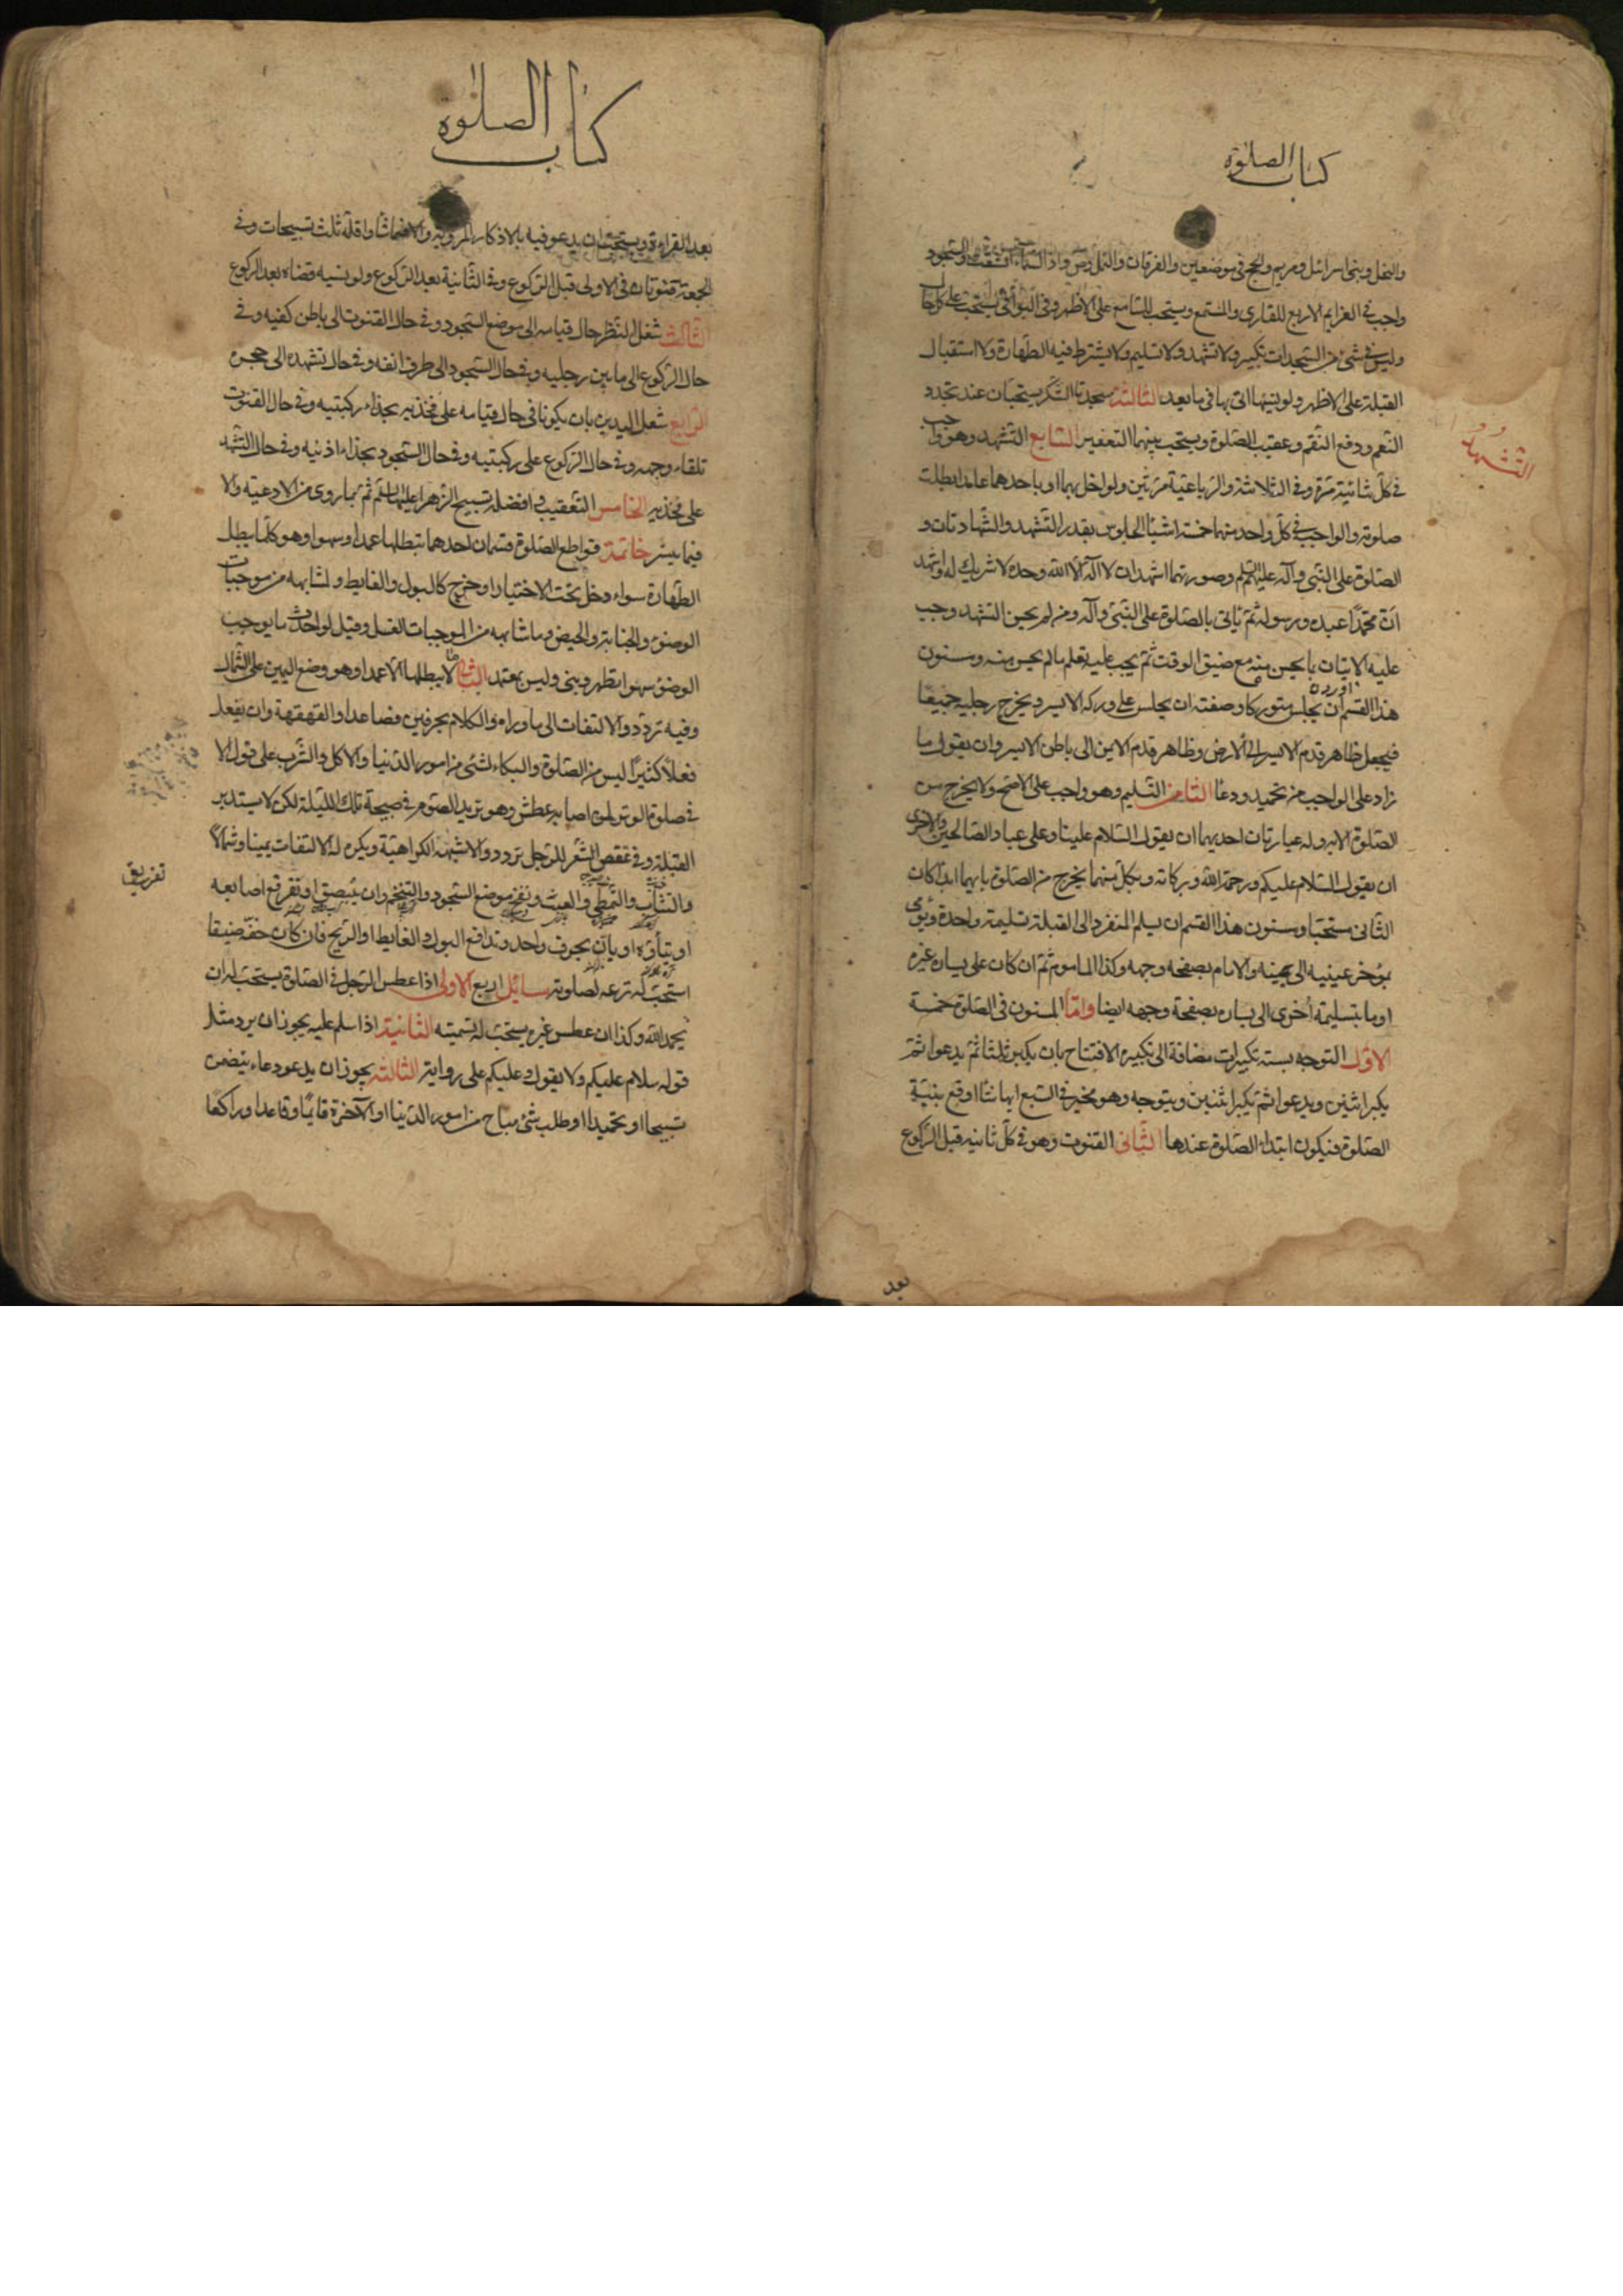 كتاب الصلوة
والنحل وبنى اسرائيل ومريم والحج فى موضعين والفرقان والنمل وص واذا السماء انشقت والسجود
واجب فى العزايم الاربع للقارى والمستمع ويستحب للسامع على الاظهر وفى البواقى يستحب على كل حال
وليس فى شىء من السجدات تكبير ولا تشهد ولا تسليم ولا يشترط فيه الطهارة ولا استقبال
القبلة على الاظهر ولو نسيها اتى بها فى ما بعد الثالثة سجدتا الشكر يستحبان عند تجدد
النعم ودفع النقم وعقيب الصلوة ويستحب بينهما التعفير السابع التشهد وهو واجب
التشهد
فى كل ثنائية مرة وفى الثلاثية والرباعية مرتين ولو اخل بهما او باحدهما عامدا بطلت
صلوته والواجب فى كل واحد منهما خمسة اشياء الجلوس بقدر التشهد والشهادتان و
الصلوة على النبى وآله عليهم السلم وصورتهما اشهد ان لا اله الا الله وحده لا شريك له واشهد
ان محمدا عبده ورسوله ثم يأتى بالصلوة على النبى وآله ومن لم يحسن التشهد وجب
عليه الاتيان بما يحسن منه مع ضيق الوقت ثم يجب عليه تعلم ما لم يحسن منه ومسنون
هذا القسم ان يجلس متوركا وصفته ان يجلس على وركه الايسر ويخرج رجليه جميعا
فيجعل ظاهر قدمه الايسر الى الارض وظاهر قدمه الايمن الى باطن الايسر وان يقول ما
زاد على الواجب من تحميد ودعاء الثامن التسليم وهو واجب على الاصح ولا يخرج من
الصلوة الا به وله عبارتان احديهما ان يقول السلام علينا وعلى عباد الله الصالحين والاخرى
ان يقول السلام عليكم ورحمة الله وبركاته وبكل منهما يخرج من الصلوة بايهما ابدأ كان
الثانى مستحبا ومسنون هذا القسم ان يسلم المنفرد الى القبلة تسليمة واحدة ويومى
بمؤخر عينيه الى يمينه والامام بصفحة وجهه وكذا الماموم ثم ان كان على يساره غيره
اوما بتسليمة اخرى الى يساره بصفحة وجهه ايضا واما المسنون فى الصلوة خمسة
الاول التوجه بستة تكبيرات مضافة الى تكبيرة الافتتاح بان يكبر ثلثا ثم يدعوا ثم
يكبر اثنين ويدعوا ثم يكبر اثنين ويتوجه وهو مخير فى السبع ايها شاء اوقع بنية
الصلوة فيكون ابتداء الصلوة عندها الثانى القنوت وهو فى كل ثانيه قبل الركوع
بعد
كتاب الصلوة
بعد القراءة ويستحب ان يدعو فيه بالاذكار المروية والا فما شاء واقله ثلث تسبيحات وفى
الجمعة قنوتان فى الاولى قبل الركوع وفى الثانية بعد الركوع ولو نسيه قضاه بعد الركوع
الثالث شغل النظر حال قيامه الى موضع السجود وفى حال القنوت الى باطن كفيه وفى
حال الركوع الى ما بين رجليه وفى حال السجود الى طرف انفه وفى حال تشهده الى حجره
الرابع شغل اليدين بان يكونا فى حال قيامه على فخذيه بحذاء ركبتيه وفى حال القنوت
تلقاء وجهه وفى حال الركوع على ركبتيه وفى حال السجود بحذاء اذنيه وفى حال التشهد
على فخذيه الخامس التعقيب وافضله تسبيح الزهرا عليها السلم ثم بما روى من الادعية والا
فبما يتسر خاتمة قواطع الصلوة قسمان احدهما تبطلها عمدا وسهوا وهو كلما يبطل
الطهارة سواء دخل تحت الاختيار او خرج كالبول والغايط ولشابهه من موجبات
الوضوء والجنابة والحيض وما شابهه من الموجبات الغسل وقيل لو احدث ما يوجب
الوضوء سهوا تطهر وبنى وليس بمعتمد الثانى ما لا يبطلها الا عمدا وهو وضع اليمين على الشمال
وفيه تردد والالتفات الى ما وراءه والكلام بحرفين فصاعدا والقهقهة وان يفعل
فعلا كثيرا ليس من الصلوة والبكاء لشئى من امور الدنيا والاكل والشرب على قول الا
فى صلوة الوتر لمن اصابه عطش وهو يريد الصوم فى صبيحة تلك الليلة لكن لا يستدبر
القبلة وفى عقص الشعر للرجل تردد والاشبه الكراهية ويكره له الالتفات يمينا وشمالا
والتثاب والتمطى والعبث ونفخ موضع السجود والتنخم وان يبصق او تفرقع اصابعه
تفريق
او يتأوه او يان بحرف واحد وتدافع البول والغايط او الريح فان كان خفه ضيقا
استحب له نزعه لصلوته مسائل اربع الاولى اذا عطس الرجل فى الصلوة يستحب له ان
يحمد الله وكذا ان عطس غيره يستحب له تسميته الثانية اذا سلم عليه يجوز ان يرد مثل
قوله سلام عليكم ولا يقول وعليكم على رواية الثالثة يجوز ان يدعو دعاء يتضمن
تسبيحا او تحميدا او طلب شئ مباح من امور الدنيا او الآخرة قائما وقاعدا وراكعا